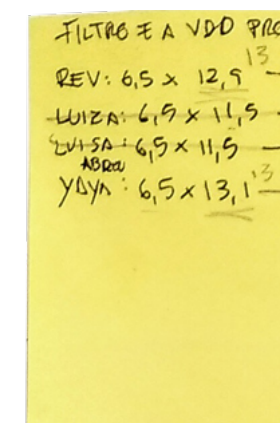 FILTRE E A VDO PRO
13
REV: 6,5 x 12,9 -
LUIZA: 6,5 x 11,5 -
LUISA: 6,5 x 11,5 -
YAYA: 6,5 x 13,1 13 -